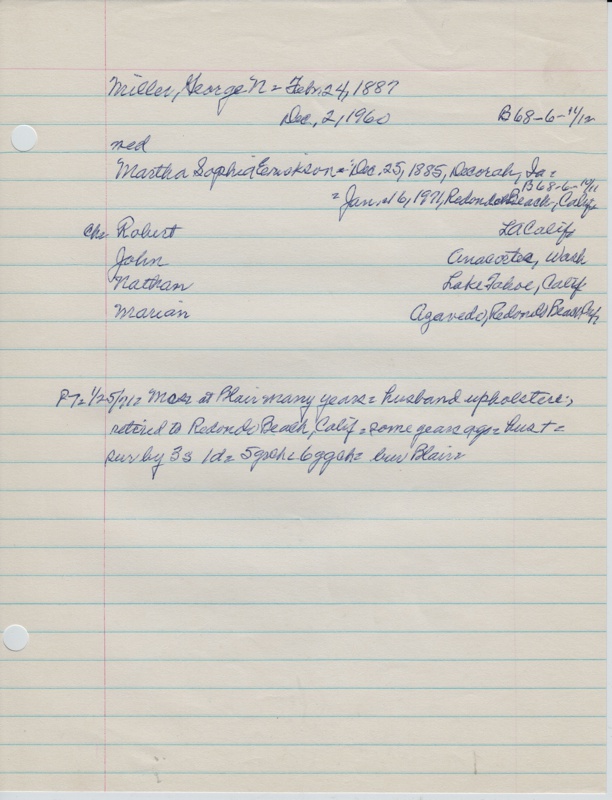 Miller, George N = Feb. 24, 1887
Dec, 2, 1960 B68-6-11/12
med
Martha Sophia Erickson = Dec. 25, 1885, Decorah, Ia =
B68-6-10/11
= Jan, 16, 1971, Redondo Beach, Calif
Ch= Robert LA Calif
John Anacortes, Wash
Nathan Lake Tahoe, Calif
Marian Agavedo, Redondo Beach, Calif
PT= 1/25/71= at Blair many years = husband upholsterer,
retired to Redondo Beach, Calif = some years ago = hus + =
sur by 3s 1d = 5gch = 6ggch = bur Blair =